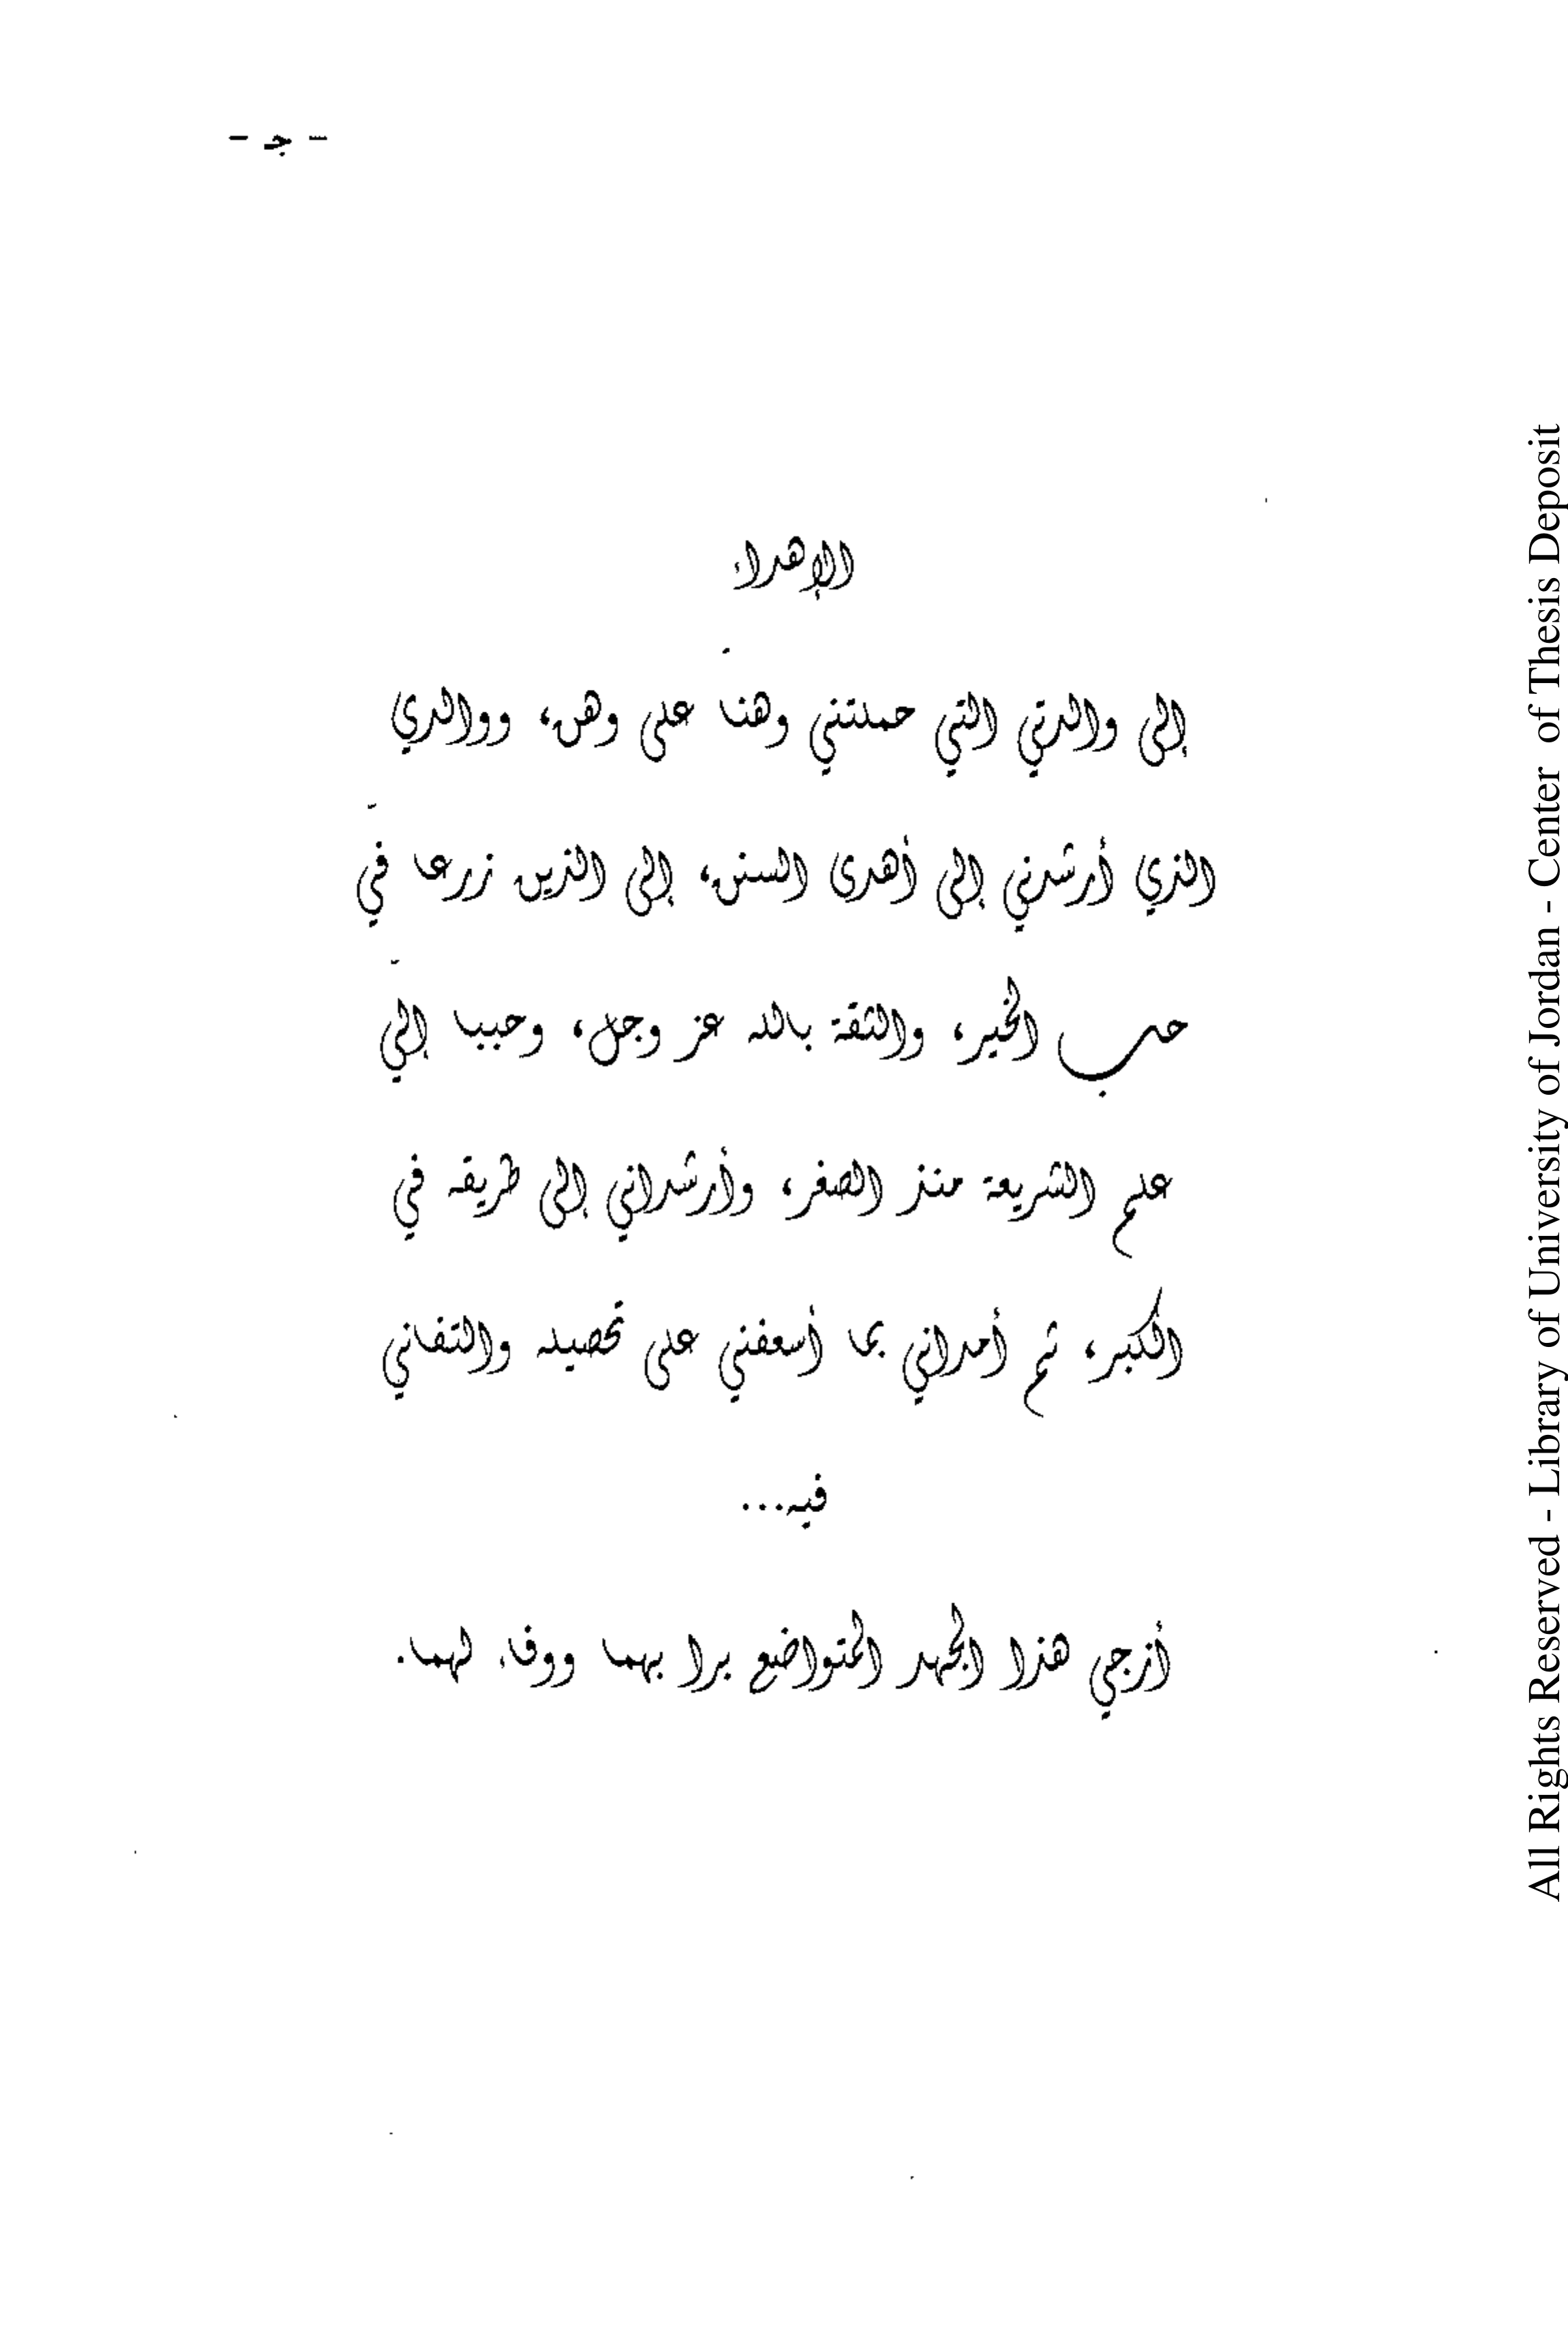 - جـ -
الإهداء
إلى والدتي التي حملتني وهنا على وهن، ووالدي
الذي أرشدني إلى أهدى السنن، إلى الذين زرعا فيّ
حب الخير، والثقة بالله عز وجل، وحببا إليّ
علم الشريعة منذ الصغر، وأرشداني إلى طريقه في
الكبر، ثم أمداني بما أسعفني على تحصيله والتفاني
فيه...
أزجي هذا الجهد المتواضع برا بهما ووفاء لهما.
All Rights Reserved - Library of University of Jordan - Center of Thesis Deposit